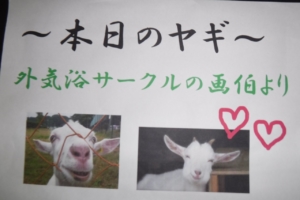 ～本日のヤギ～
外気浴サークルの画伯より